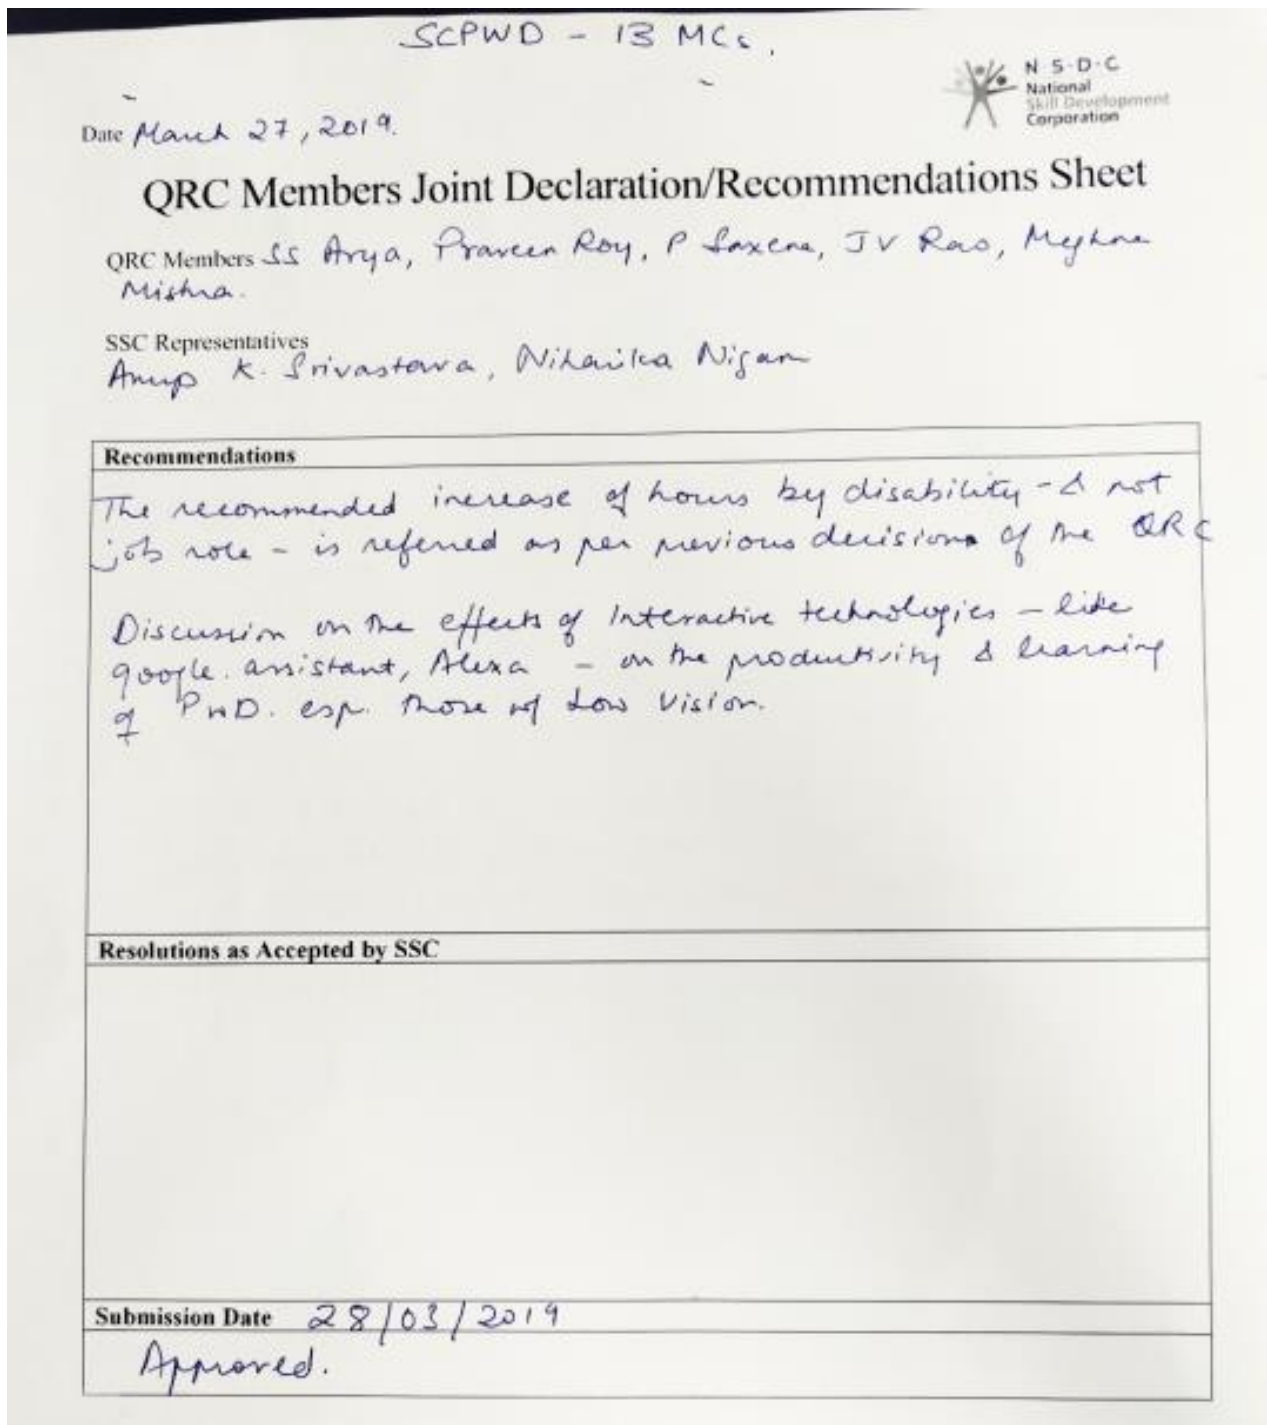 SCPWD - 13 MCs.
N·S·D·C
National
Skill Development
Corporation
Date March 27, 2019.
QRC Members Joint Declaration/Recommendations Sheet
QRC Members SS Arya, Praveen Roy, P Saxena, JV Rao, Meghna
Mishra.
SSC Representatives
Anup K. Srivastava, Niharika Nigam
Recommendations
The recommended increase of hours by disability - & not
job role - is referred as per previous decisions of the QRC
Discussion on the effects of Interactive technologies - like
google. assistant, Alexa - on the productivity & learning
of PwD. esp. those w/ Low Vision.
Resolutions as Accepted by SSC
Submission Date 28/03/2019
Approved.